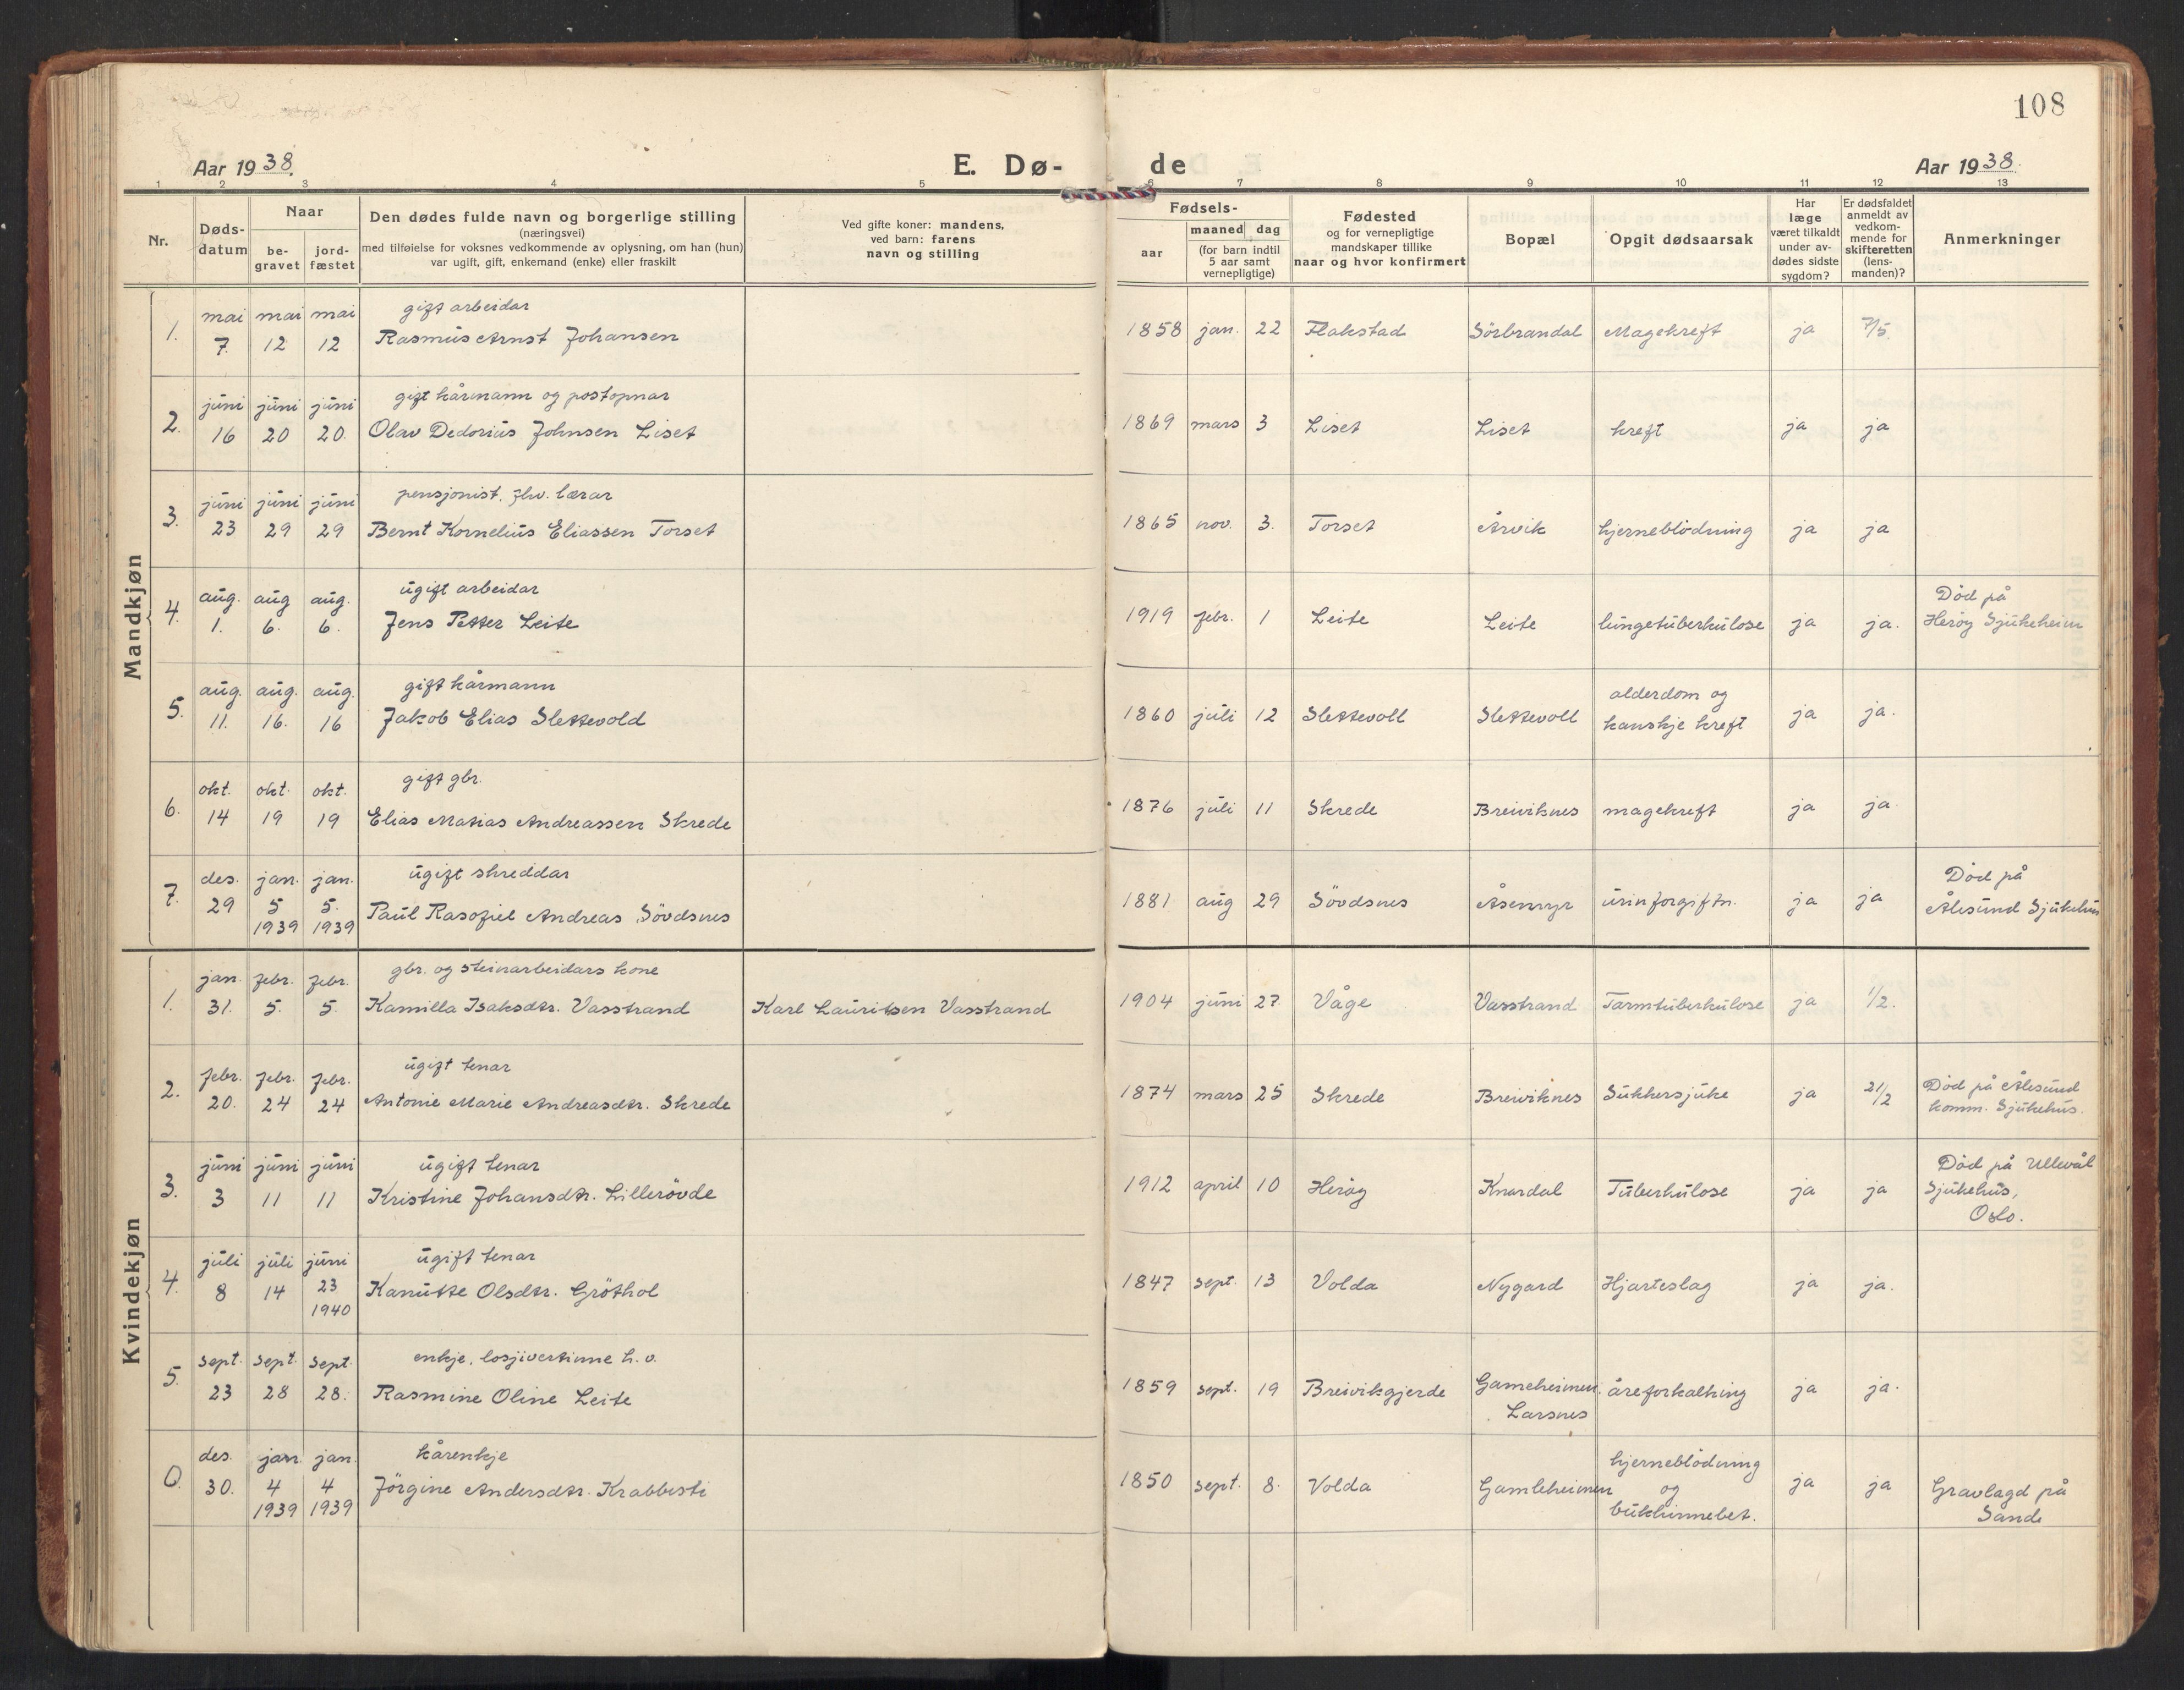 108
Aar 1938.
E. Dø-
de
Aar 1938.
1 2 3 4 5 6 7 8 9 10 11 12 13
Nr.
Døds-
datum
Naar
be-
gravet
jord-
fæstet
Den dødes fulde navn og borgerlige stilling
(næringsvei)
med tilføielse for voksnes vedkommende av oplysning, om han (hun)
var ugift, gift, enkemand (enke) eller fraskilt
Ved gifte koner: mandens,
ved barn: farens
navn og stilling
Fødsels-
aar
maaned dag
(for barn indtil
5 aar samt
vernepligtige)
Fødested
og for vernepligtige
mandskaper tillike
naar og hvor konfirmert
Bopæl
Opgit dødsaarsak
Har
læge
været tilkaldt
under av-
dødes sidste
sygdom?
Er dødsfaldet
anmeldt av
vedkom-
mende for
skifteretten
(lens-
manden)?
Anmerkninger
Mandkjøn
1. mai 7. mai 12 mai 12 gift arbeidar
Rasmus Arnst Johansen 1858 jan. 22 Flakstad Sörbrandal Magekreft ja 7/5.
2. juni 16 juni 20 juni 20. gift kårmann og postopnar
Olav Dedorius Johnsen Liset 1869 mars 3 Liset Liset kreft ja ja
3. juni 23 juni 29 juni 29 pensjonist, fhv. lærar
Bernt Kornelius Eliassen Torset 1865 nov. 3. Torset Årvik hjerneblödning ja ja
4. aug. 1. aug 6. aug. 6. ugift arbeidar
Jens Petter Leite 1919 febr. 1 Leite Leite lungetuberkulose ja ja. Död på
Heröy Sjukeheim
5. aug. 11. aug. 16. aug. 16 gift kårmann
Jakob Elias Slettevold 1860 juli 12 Slettevoll Slettevoll alderdom og
kanskje kreft ja ja.
6. okt. 14 okt. 19 okt. 19 gift gbr.
Elias Matias Andreassen Skrede 1876 juli 11 Skrede Breiviknes magekreft ja ja.
7. des. 29 jan. 5 1939 jan. 5. 1939 ugift skreddar
Paul Rasofiel Andreas Sövdsnes 1881 aug 29 Sövdsnes Åsemyr urinforgiftn. ja ja Död på
Ålesund Sjukehus
Kvindekjøn
1. jan. 31. febr. 5. febr. 5. gbr. og steinarbeidars kone
Kamilla Isaksdtr. Vasstrand Karl Lauritsen Vasstrand 1904 juni 27 Våge Vasstrand Tarmtuberkulose ja 1/2.
2. febr. 20. febr. 24 febr. 24 ugift tenar
Antonie Marie Andreasdtr. Skrede 1874 mars 25 Skrede Breiviknes Sukkersjuke ja 21/2 Död på Ålesund
komm. Sjukehus.
3. juni 3 juni 11 juni 11 ugift tenar
Kristine Johansdtr. Lillerövde 1912 april 10 Heröy Knardal Tuberkulose ja ja Död på Ullevål
Sjukehus,
Oslo.
4. juli 8 juli 14 juni 23 1940 ugift tenar
Kanutte Olsdtr. Gröthol 1847 sept. 13 Volda Nygard Hjarteslag ja ja.
5. sept. 23 sept. 28 sept. 28. enkje, losjivertinne h. v.
Rasmine Oline Leite 1859 sept. 19 Breivikgjerde Gameheimen,
Larsnes åreforkalking ja ja.
0. des. 30. jan 4 1939 jan. 4 1939 kårenkje
Jörgine Andersdtr. Krabbesti 1850 sept. 8. Volda Gamleheimen hjerneblödning
og
bukhinnebet. ja ja Gravlagd på
Sande